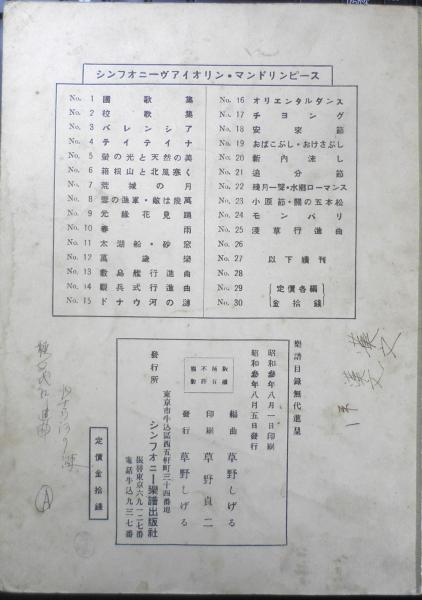 シンフオニーヴアイオリン・マンドリンピース
No. 1 國歌集
No. 2 校歌集
No. 3 バレンシア
No. 4 テイテイナ
No. 5 螢の光と天然の美
No. 6 箱根山と北風寒く
No. 7 荒城の月
No. 8 雪の進軍・敵は幾萬
No. 9 元祿花見踊
No. 10 春雨
No. 11 太湖船・砂窓
No. 12 萬歲樂
No. 13 敷島艦行進曲
No. 14 觀兵式行進曲
No. 15 ドナウ河の漣
No. 16 オリエンタルダンス
No. 17 チヨング
No. 18 安來節
No. 19 おばこぶし・おけさぶし
No. 20 新內流し
No. 21 追分節
No. 22 殘月一聲・水鄕ローマンス
No. 23 小原節・關の五本松
No. 24 モンパリ
No. 25 淺草行進曲
No. 26
No. 27 以下續刊
No. 28
No. 29 定價各編
No. 30 金拾錢
樂譜目錄無代進呈
昭和參年八月一日印刷
昭和參年八月五日發行
編曲 草野しげる
印刷 草野貞二
發行 草野しげる
版權所有
不許複製
發行所
東京市牛込區西五軒町三十四番地
シンフオニー樂譜出版社
振替東京六九一二七番
電話牛込九三一七番
定價金拾錢
漢文
漢文
A